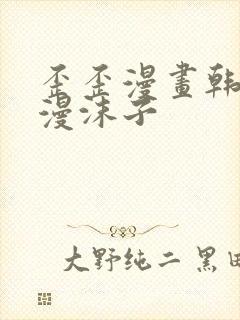 歪歪漫畫韩
漫沫子
大野纯二 黑田